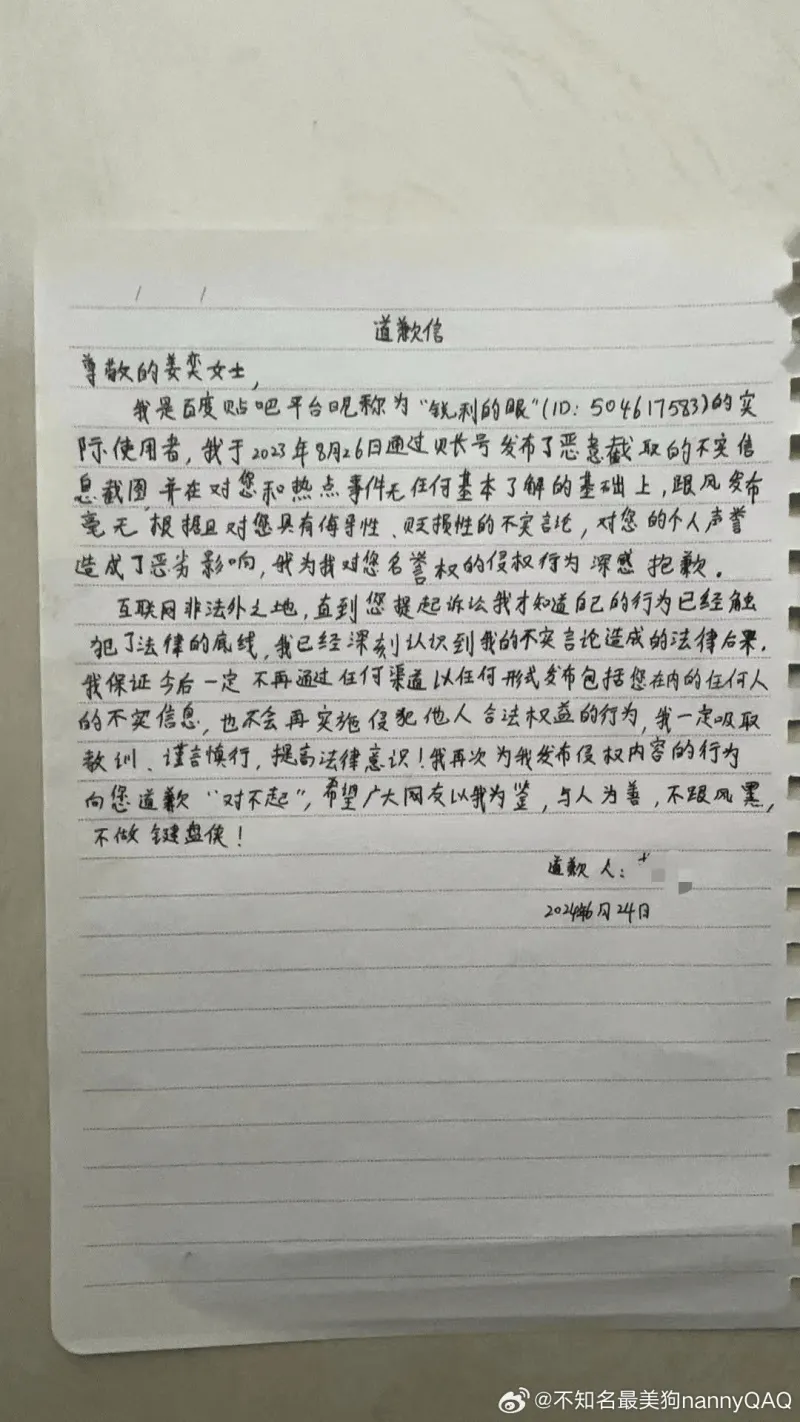 / /
道歉信
尊敬的姜奕女士,
我是百度贴吧平台昵称为“锐利的眼”(ID:504617583)的实
际使用者,我于2023年8月26日通过贝长号发布了恶意截取的不实信
息截图,并在对您和热点事件无任何基本了解的基础上,跟风发布
毫无根据且对您具有侮辱性、贬损性的不实言论,对您的个人声誉
造成了恶劣影响,我为我对您名誉权的侵权行为深感抱歉.
互联网非法外之地,直到您提起诉讼我才知道自己的行为已经触
犯了法律的底线,我已经深刻认识到我的不实言论造成的法律后果.
我保证今后一定不再通过任何渠道以任何形式发布包括您在内的任何人
的不实信息,也不会再实施侵犯他人合法权益的行为,我一定吸取
教训、谨言慎行,提高法律意识!我再次为我发布侵权内容的行为
向您道歉“对不起”,希望广大网友以我为鉴,与人为善,不跟风黑,
不做键盘侠!
道歉人:
2024年6月24日
@不知名最美狗nannyQAQ